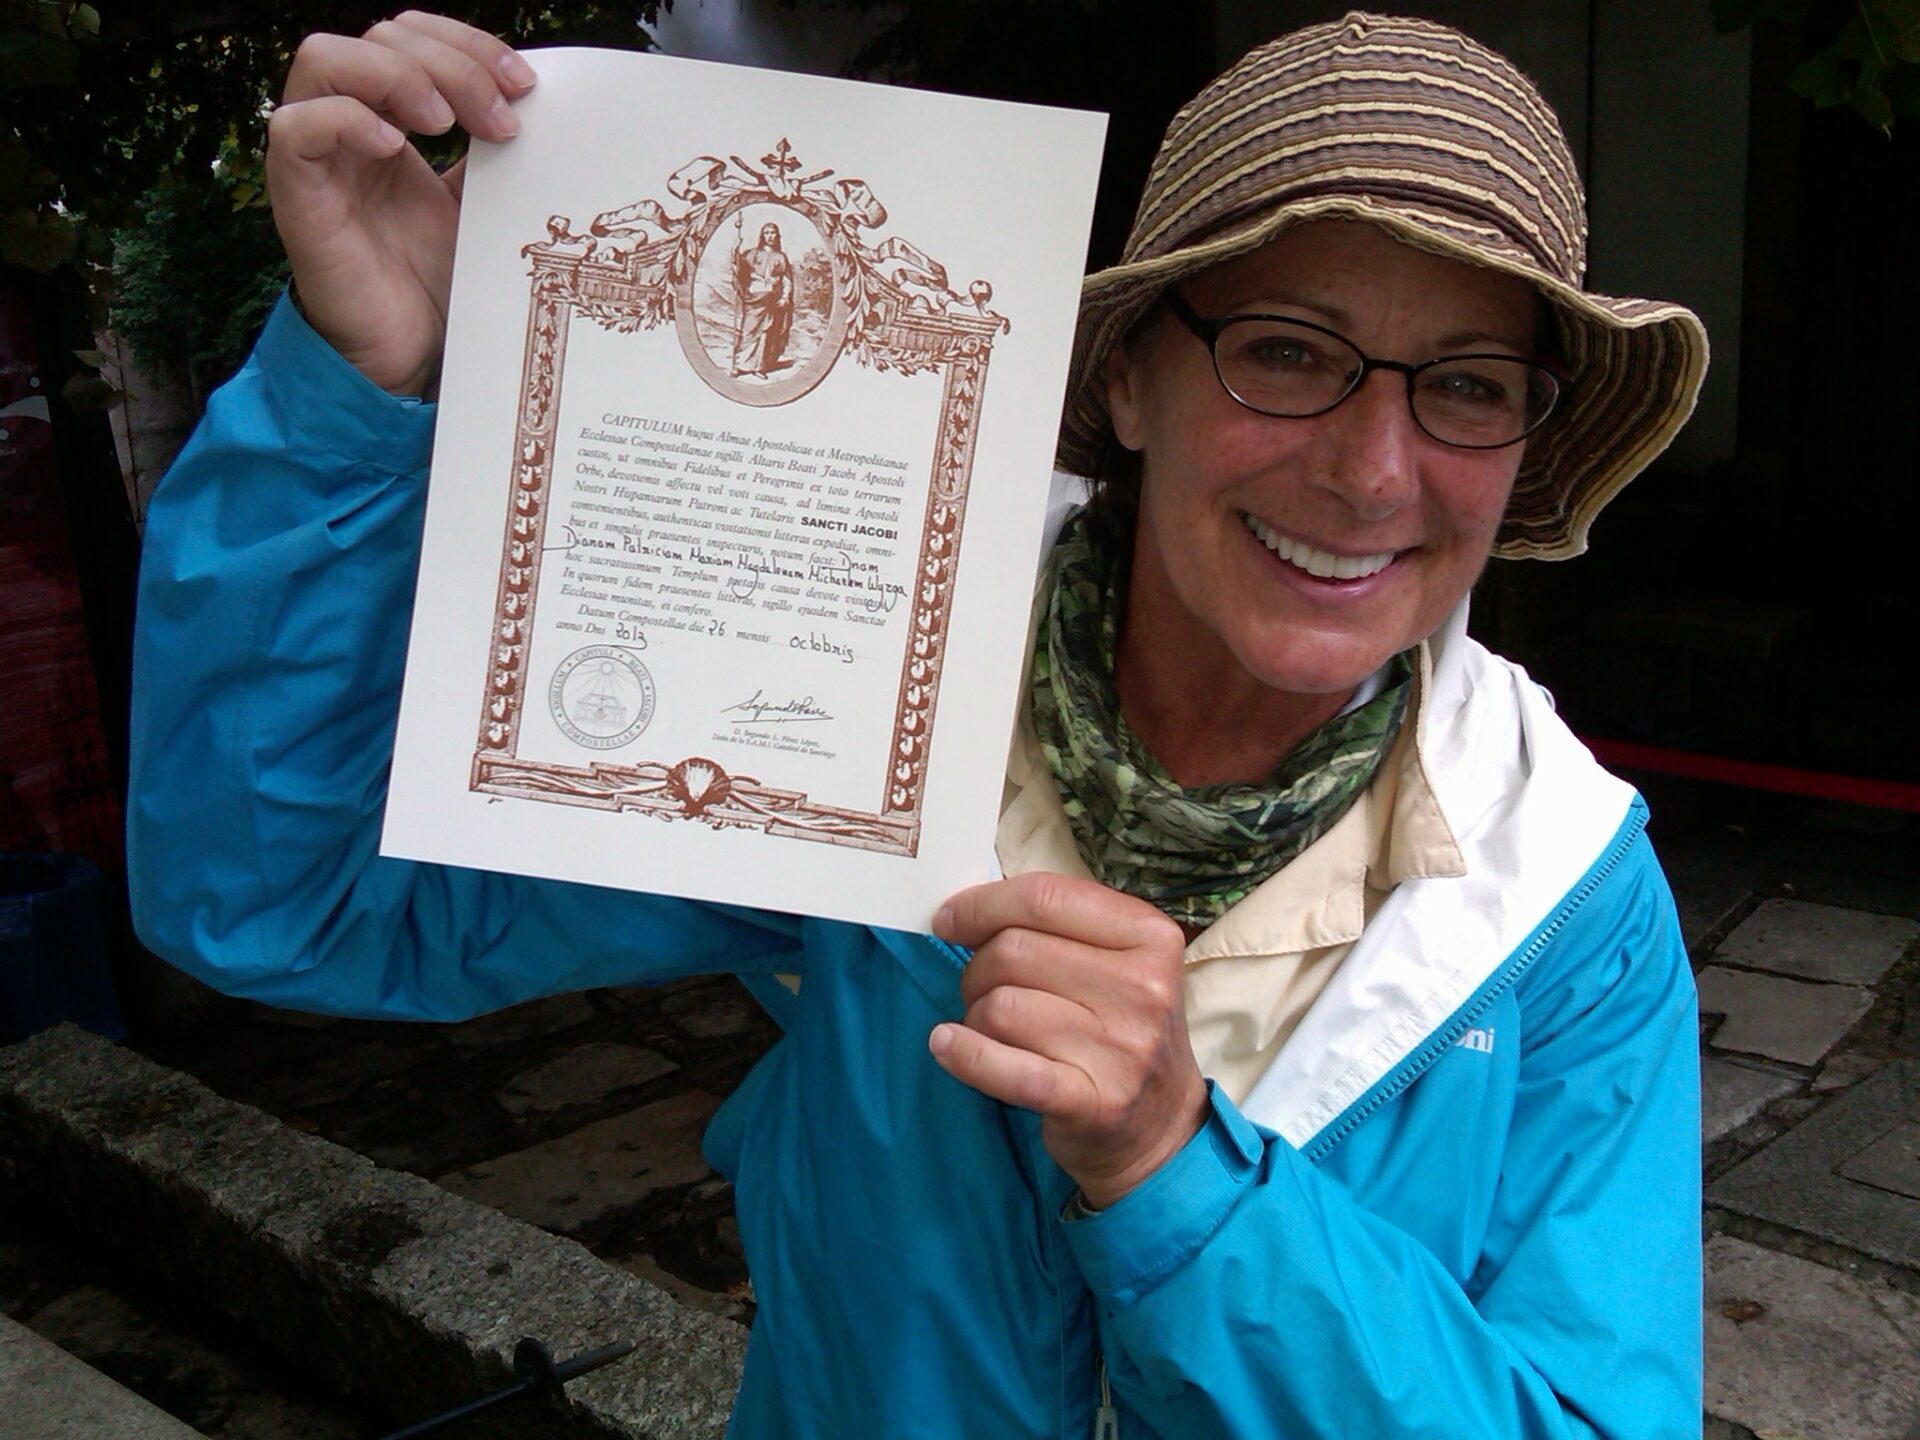 CAPITULUM hujus Almae Apostolicae et Metropolitanae
Ecclesiae Compostellanae sigilli Altaris Beati Jacobi Apostoli
custos, ut omnibus Fidelibus et Peregrinis ex toto terrarum
Orbe, devotionis affectu vel voti causa, ad limina Apostoli
Nostri Hispaniarum Patroni ac Tutelaris SANCTI JACOBI
convenientibus, authenticas visitationis litteras expediat, omni-
bus et singulis praesentes inspecturis, notum facit: Dnam
Dianam Patriciam Mariam Magdalenam
hoc sacratissimum Templum pietatis causa devote visitasse
In quorum fidem praesentes litteras, sigillo ejusdem Sanctae
Ecclesiae munitas, ei confero.
Datum Compostellae die 26 mensis octobris
anno Dni 2013
SIGILLUM CAPITULI BEATI JACOBI COMPOSTELLAE
D. Segundo L. Pérez López,
Deán de la S.A.M.I. Catedral de Santiago